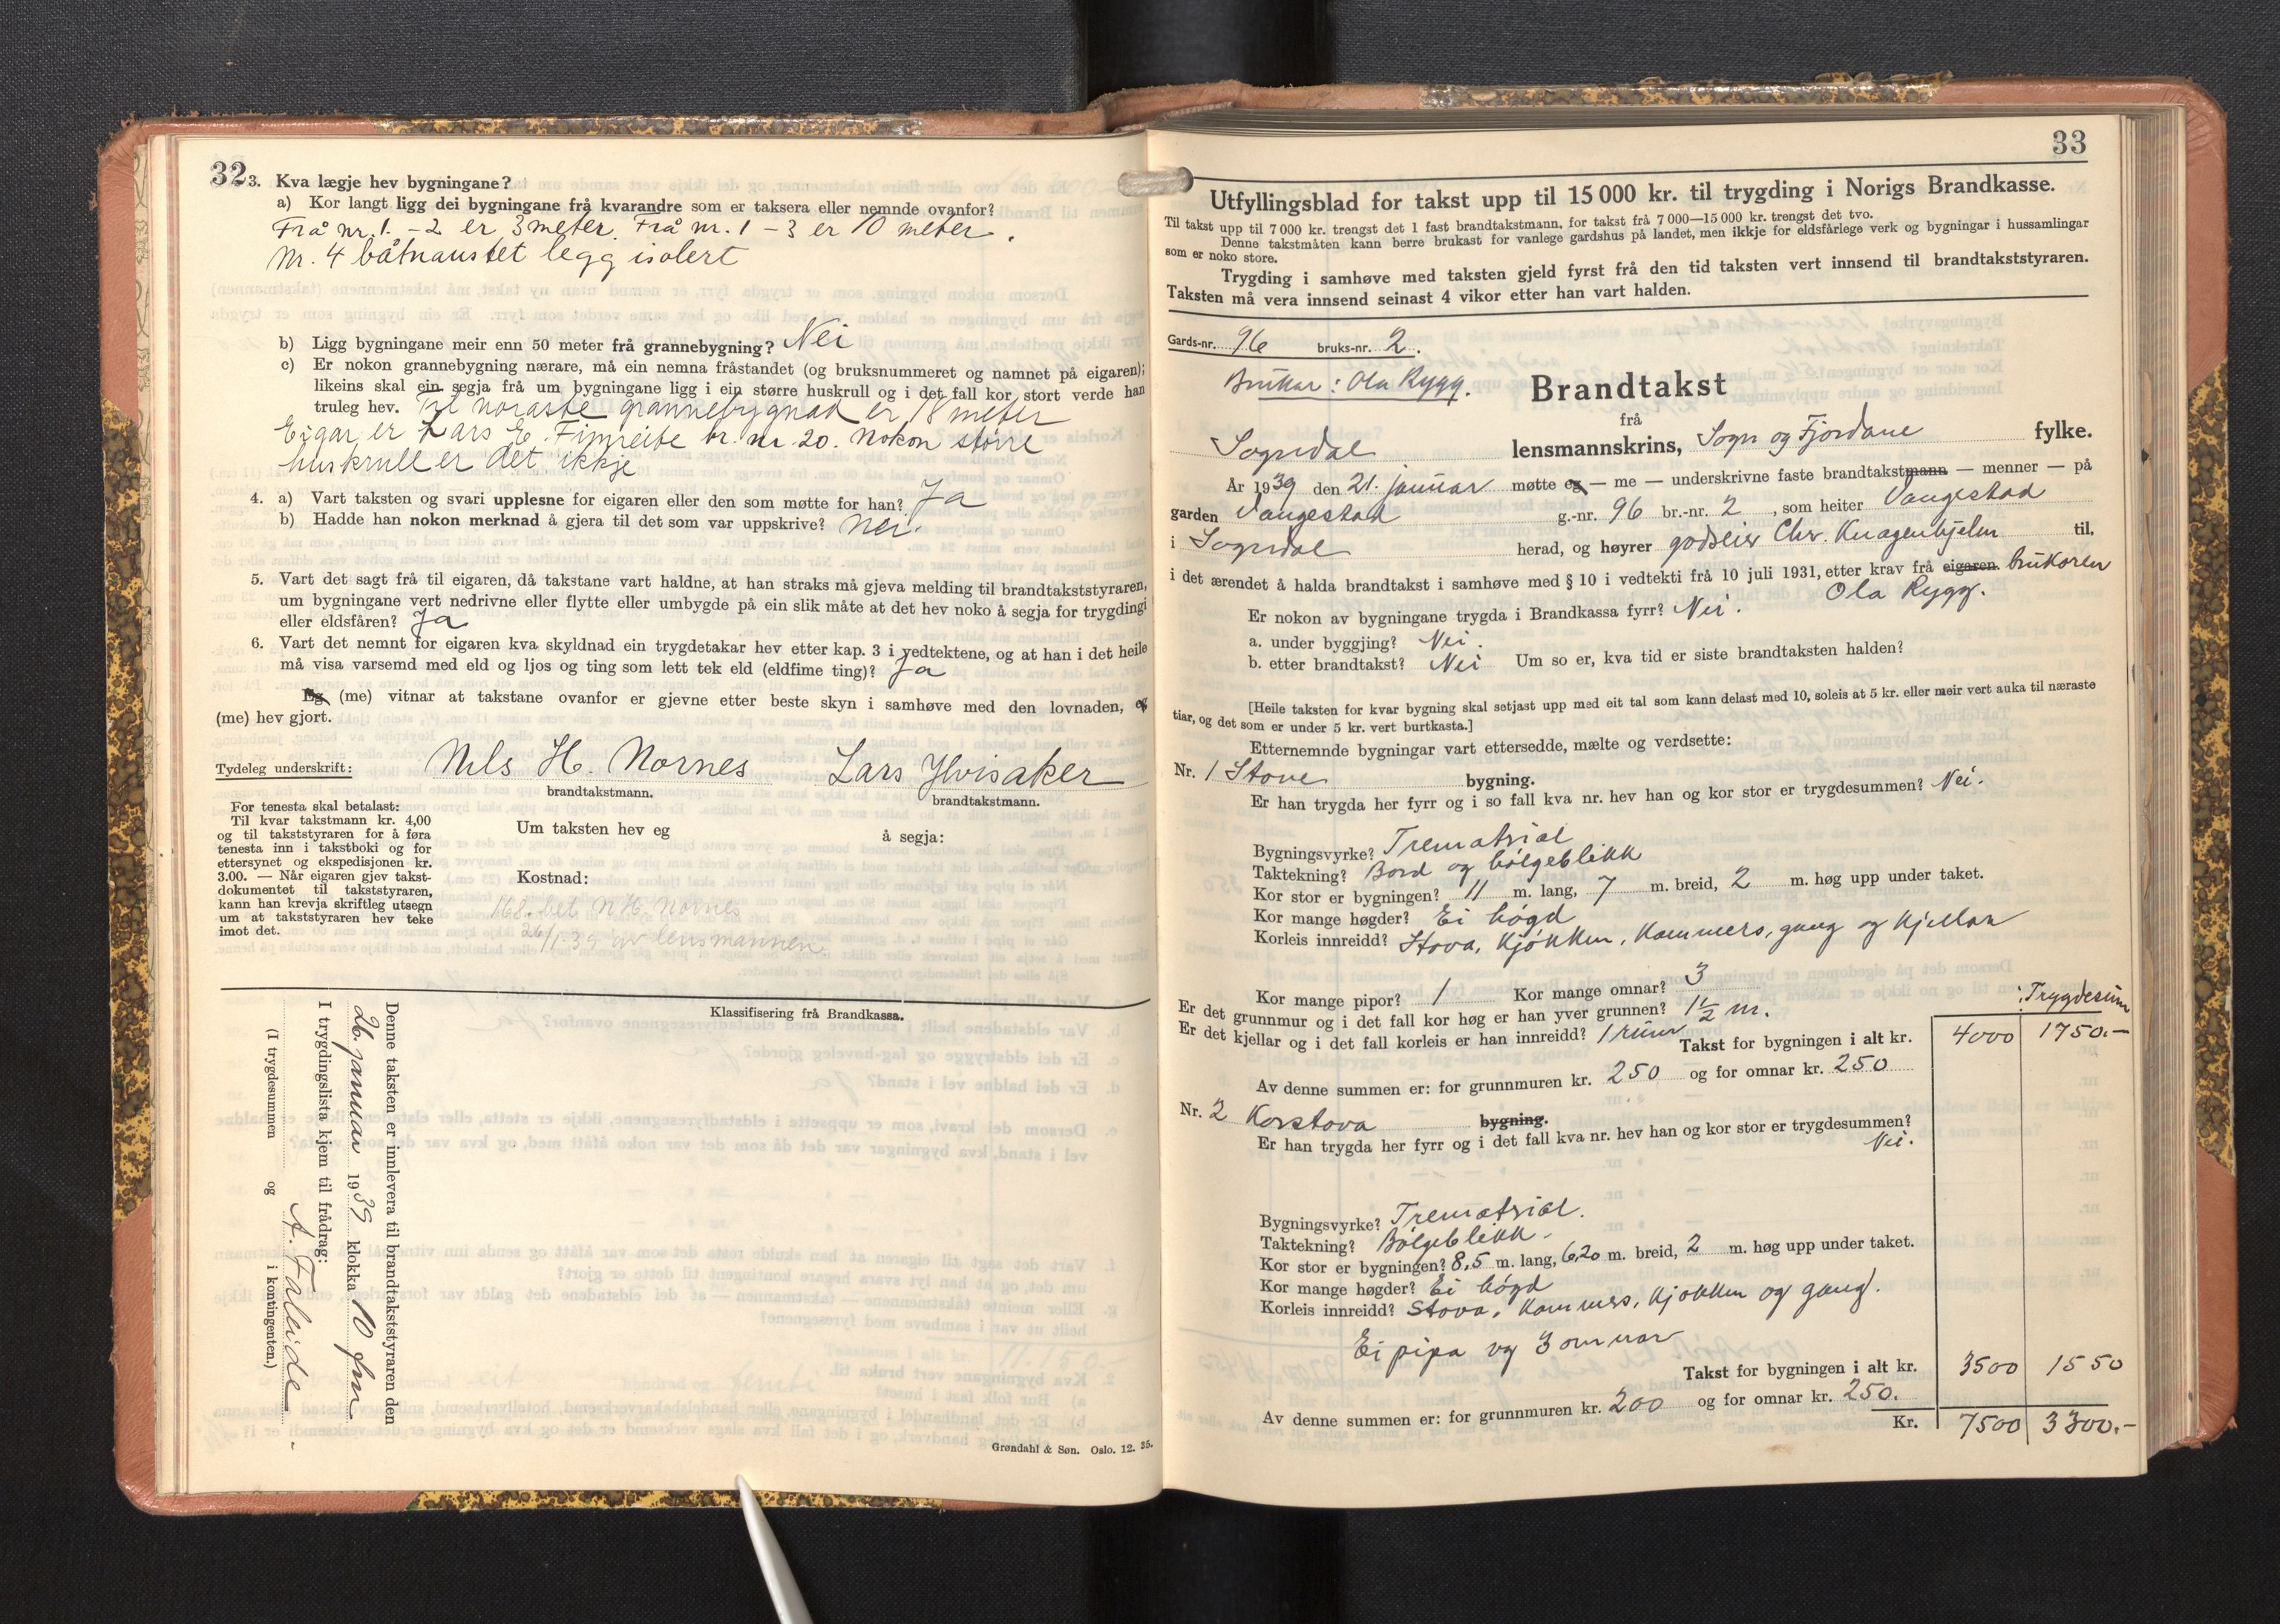 32
3. Kva lægje hev bygningane?
a) Kor langt ligg dei bygningane frå kvarandre som er taksera eller nemnde ovanfor?
Frå nr. 1. – 2 er 3 meter. Frå nr. 1 – 3 er 10 meter.
Nr. 4 båtnaustet legg isolert
b) Ligg bygningane meir enn 50 meter frå grannebygning? Nei
c) Er nokon grannebygning nærare, må ein nemna fråstandet (og bruksnummeret og namnet på eigaren);
likeins skal ein segja frå um bygningane ligg i ein større huskrull og i det fall kor stort verde han
truleg hev. Til noraste grannebygnad er 18 meter
Eigar er Lars E. Fimreite br. nr. 20. Nokon større
huskrull er det ikkje
4. a) Vart taksten og svari upplesne for eigaren eller den som møtte for han? Ja
b) Hadde han nokon merknad å gjera til det som var uppskrive? Nei.
5. Vart det sagt frå til eigaren, då takstane vart haldne, at han straks må gjeva melding til brandtakststyraren,
um bygningane vert nedrivne eller flytte eller umbygde på ein slik måte at det hev noko å segja for trygdingi
eller eldsfåren? Ja
6. Vart det nemnt for eigaren kva skyldnad ein trygdetakar hev etter kap. 3 i vedtektene, og at han i det heile
må visa varsemd med eld og ljos og ting som lett tek eld (eldfime ting)? Ja
Eg (me) vitnar at takstane ovanfor er gjevne etter beste skyn i samhøve med den lovnaden, eg
(me) hev gjort.
Tydeleg underskrift: Nils H. Nornes Lars Ylvisaker
brandtakstmann. brandtakstmann.
For tenesta skal betalast:
Til kvar takstmann kr. 4,00
og til takststyraren for å føra
tenesta inn i takstboki og for
ettersynet og ekspedisjonen kr.
3.00. — Når eigaren gjev takst-
dokumentet til takststyraren,
kann han krevja skriftleg utsegn
um at takststyraren hev teke
imot det.
Um taksten hev eg å segja:
Kostnad:
168. bet N H. Nornes
26/1.39 av lensmannen
Klassifisering frå Brandkassa.
Denne taksten er innlevera til brandtakststyraren den
26. januar 1939 klokka 10 fm
I trygdingslista kjem til frådrag:
A. Faleide
(I trygdesummen og i kontingenten.)
Grøndahl & Søn. Oslo. 12. 35.
33
Utfyllingsblad for takst upp til 15 000 kr. til trygding i Norigs Brandkasse.
Til takst upp til 7 000 kr. trengst det 1 fast brandtakstmann, for takst frå 7 000—15 000 kr. trengst det tvo.
Denne takstmåten kann berre brukast for vanlege gardshus på landet, men ikkje for eldsfårlege verk og bygningar i hussamlingar
som er noko store.
Trygding i samhøve med taksten gjeld fyrst frå den tid taksten vert innsend til brandtakststyraren.
Taksten må vera innsend seinast 4 vikor etter han vart halden.
Gards-nr. 96 bruks-nr. 2.
Brukar: Ola Rygg.
Brandtakst
frå
Sogndal lensmannskrins, Sogn og Fjordane fylke.
År 1939 den 21. januar møtte eg — me — underskrivne faste brandtakstmann — menner — på
garden Vangestad g.-nr. 96 br.-nr. 2, som heiter Vangestad
i Sogndal herad, og høyrer godseier Chr. Knagenhjelm til,
i det ærendet å halda brandtakst i samhøve med § 10 i vedtekti frå 10 juli 1931, etter krav frå eigaren. brukaren
Ola Rygg.
Er nokon av bygningane trygda i Brandkassa fyrr? Nei.
a. under byggjing? Nei.
b. etter brandtakst? Nei Um so er, kva tid er siste brandtaksten halden?
[Heile taksten for kvar bygning skal setjast upp med eit tal som kann delast med 10, soleis at 5 kr. eller meir vert auka til næraste
tiar, og det som er under 5 kr. vert burtkasta.]
Etternemnde bygningar vart ettersedde, mælte og verdsette:
Nr. 1 Stove bygning.
Er han trygda her fyrr og i so fall kva nr. hev han og kor stor er trygdesummen? Nei.
Bygningsvyrke? Trematrial
Taktekning? Bord og bølgeblikk
Kor stor er bygningen? 11 m. lang, 7 m. breid, 2 m. høg upp under taket.
Kor mange høgder? Ei høgd
Korleis innreidd? Stova, kjøkken, kammers, gang og kjellar
Kor mange pipor? 1 Kor mange omnar? 3
Er det grunnmur og i det fall kor høg er han yver grunnen? 1½ m.
Er det kjellar og i det fall korleis er han innreidd? 1 rum
Trygdesum
Takst for bygningen i alt kr. 4000 1750.—
Av denne summen er: for grunnmuren kr. 250 og for omnar kr. 250
Nr. 2 Korstova bygning.
Er han trygda her fyrr og i det fall kva nr. hev han og kor stor er trygdesummen?
Nei.
Bygningsvyrke? Trematrial.
Taktekning? Bølgeblikk.
Kor stor er bygningen? 8,5 m. lang, 6,20 m. breid, 2 m. høg upp under taket.
Kor mange høgder? Ei høgd
Korleis innreidd? Stova, kammers, kjøkken og gang.
Ei pipa og 3 omnar
Takst for bygningen i alt kr. 3500 1550
Av denne summen er: for grunnmuren kr. 200 og for omnar kr. 250.
Kr. 7500 3300.—